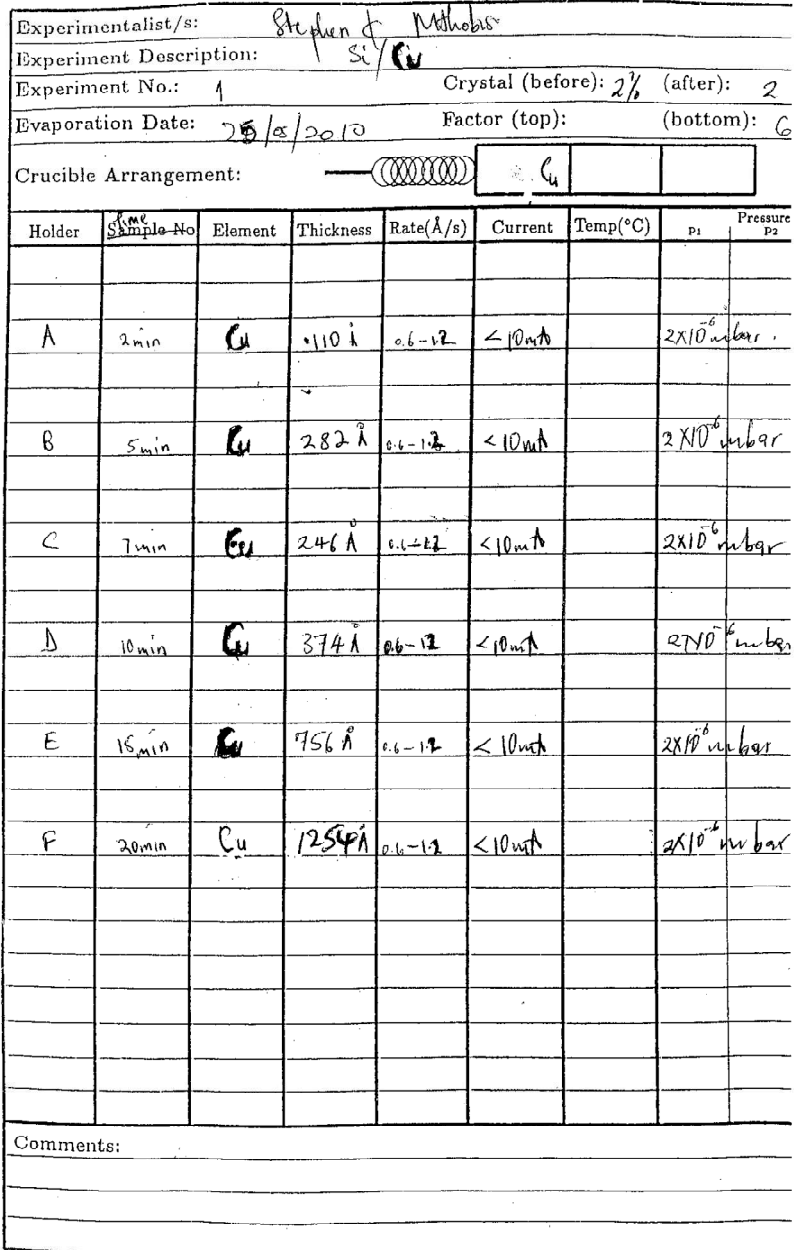 Experimentalist/s: Stephen &
Experiment Description: Si/Cu
Experiment No.: 1 Crystal (before): 2% (after): 2
Evaporation Date: /8/2010 Factor (top): (bottom): 6
Crucible Arrangement: Cu
Holder Time Sample No Element Thickness Rate(Å/s) Current Temp(°C) P1 Pressure P2
A 2min Cu 110 Å 0.6-1.2 <10mA 2X10^-6 mbar.
B 5min Cu 282 Å 0.6-1.2 <10mA 2X10^-6 mbar
C 7min Cu 246 Å 0.6-1.2 <10mA 2X10^-6 mbar
D 10min Cu 374 Å 0.6-1.2 <10mA 2X10^-6 mbar
E 15min Cu 756 Å 0.6-1.2 <10mA 2X10^-6 mbar
F 20min Cu 1254Å 0.6-1.2 <10mA 2X10^-6 mbar
Comments: